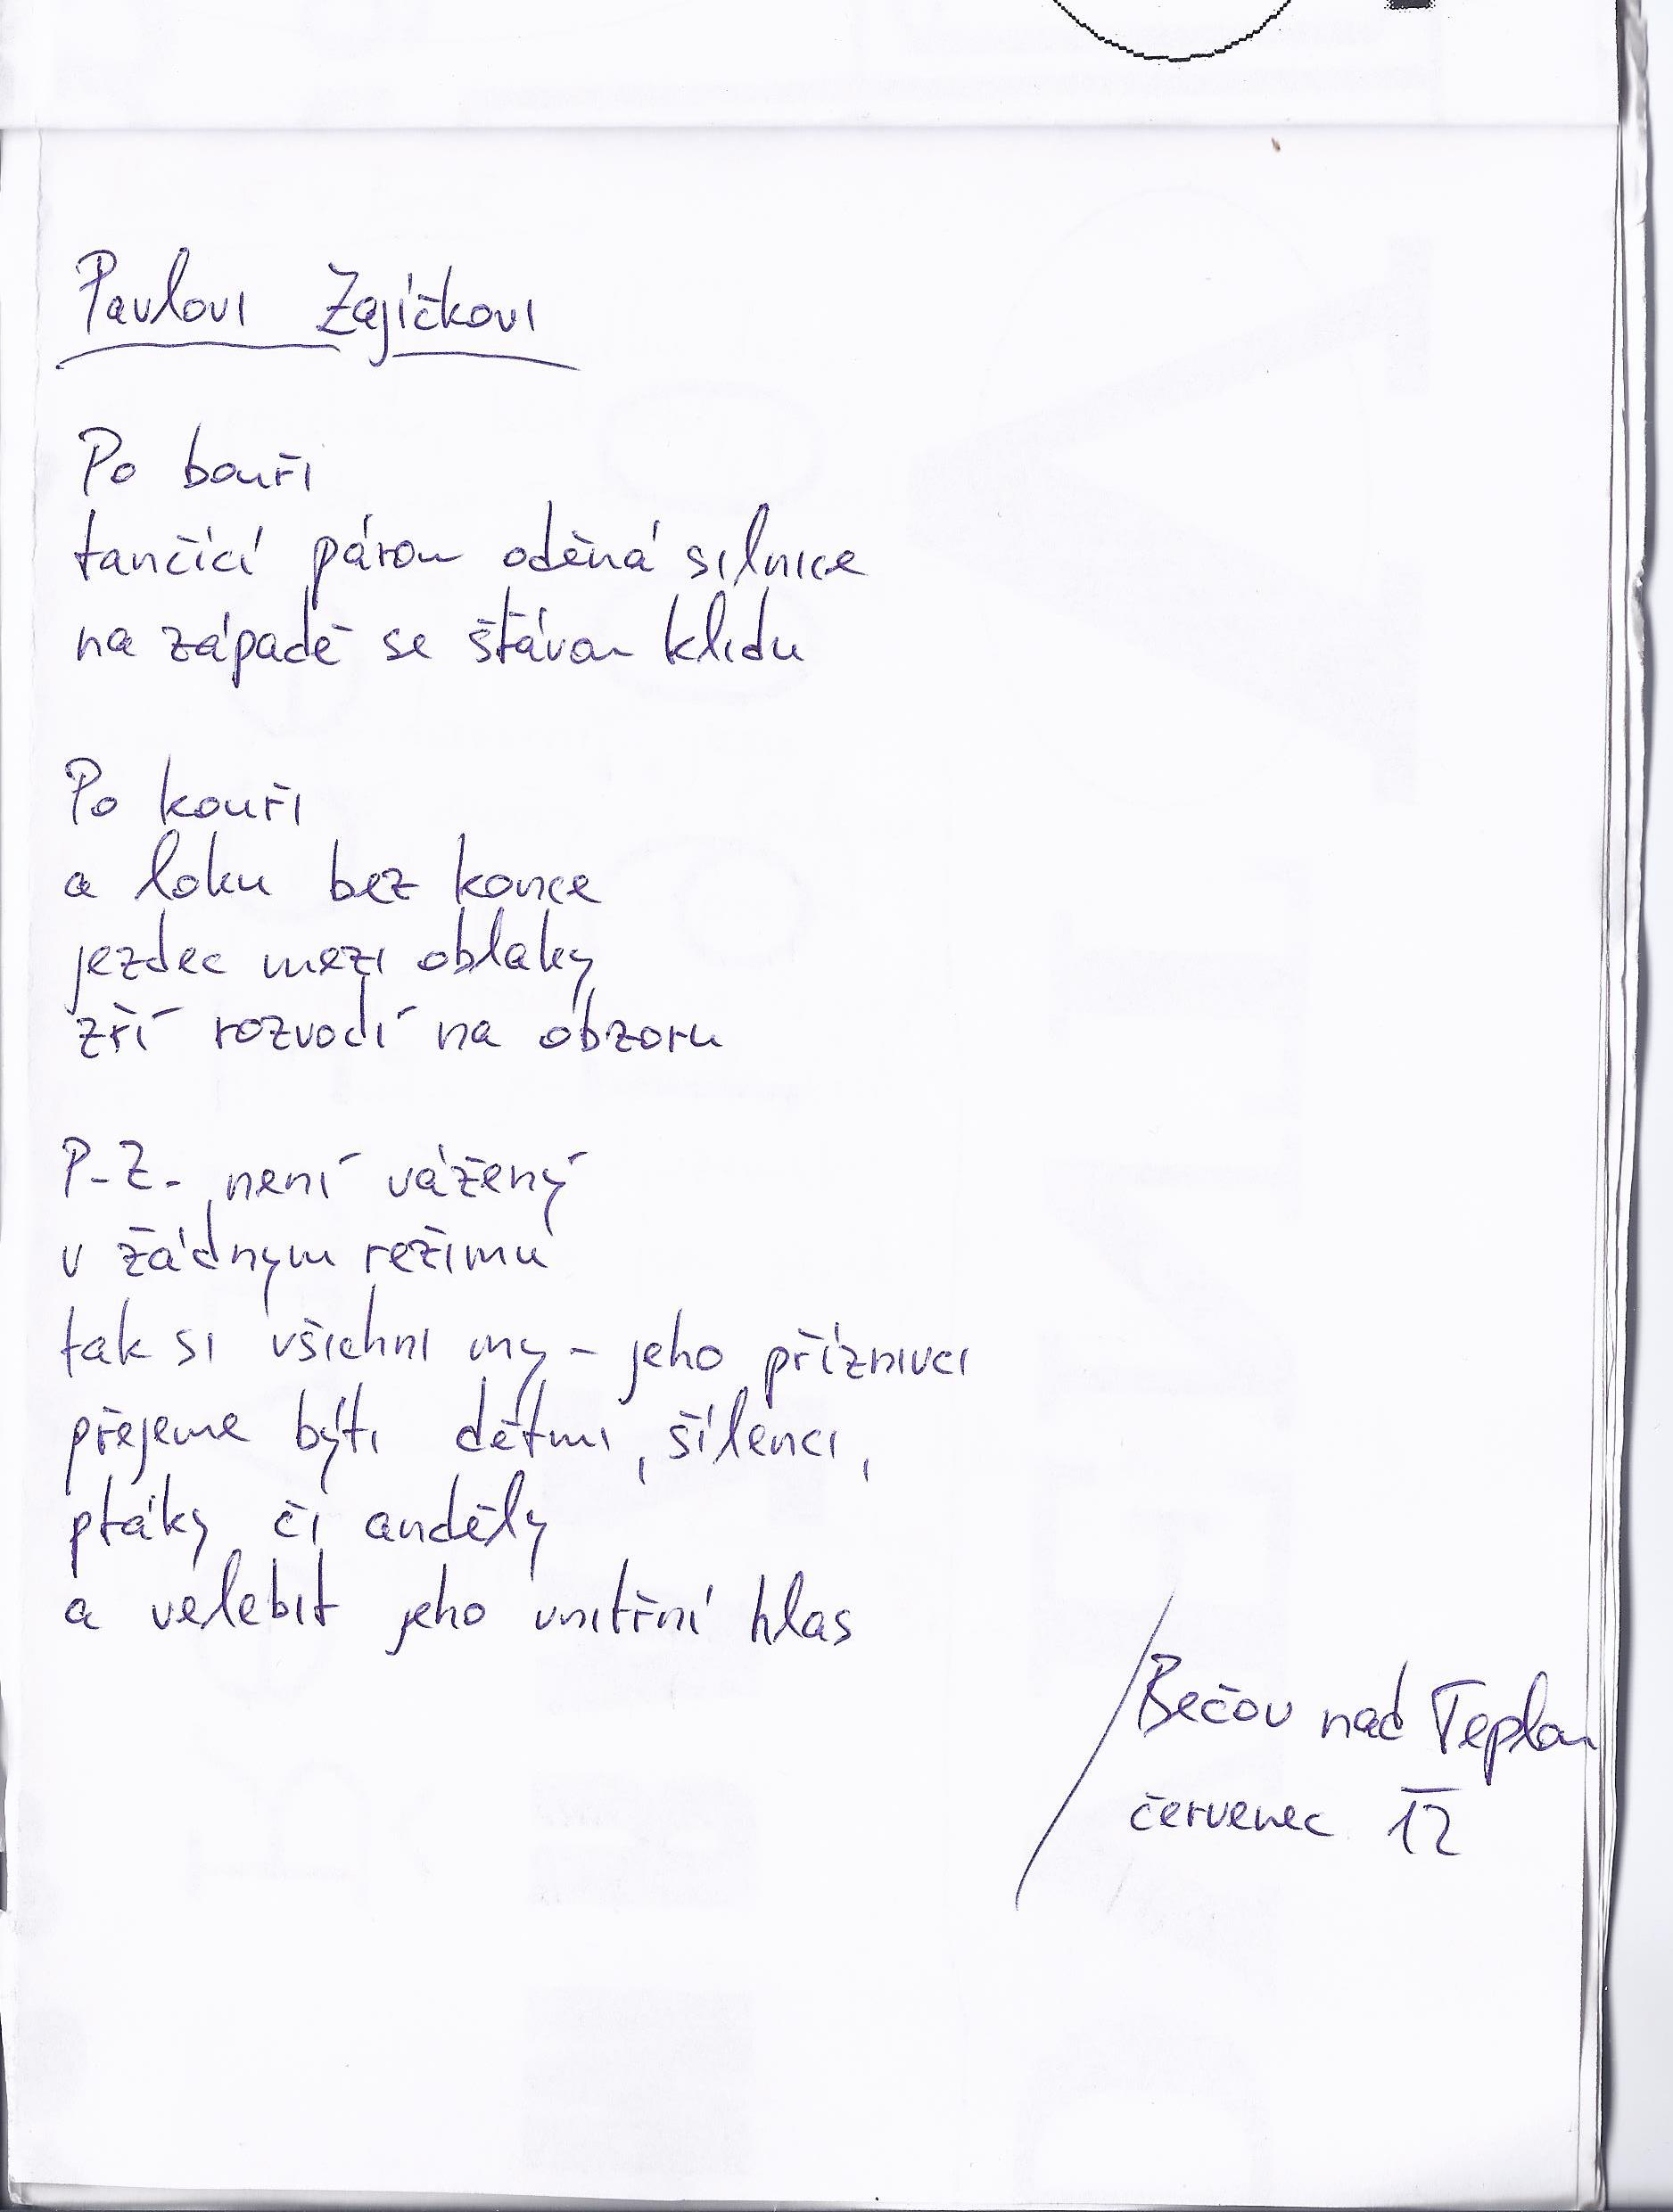 Pavlovi Zajíčkovi
Po bouři
tančící párou oděná silnice
na západě se šťávou klidu
Po kouři
a loku bez konce
jezdec mezi oblaky
zří rozvodí na obzoru
P.Z. není vážený
v žádnym režimu
tak si všichni my – jeho příznivci
přejeme býti dětmi, šílenci,
ptáky či anděly
a velebit jeho vnitřní hlas
Bečov nad Teplou
červenec 12